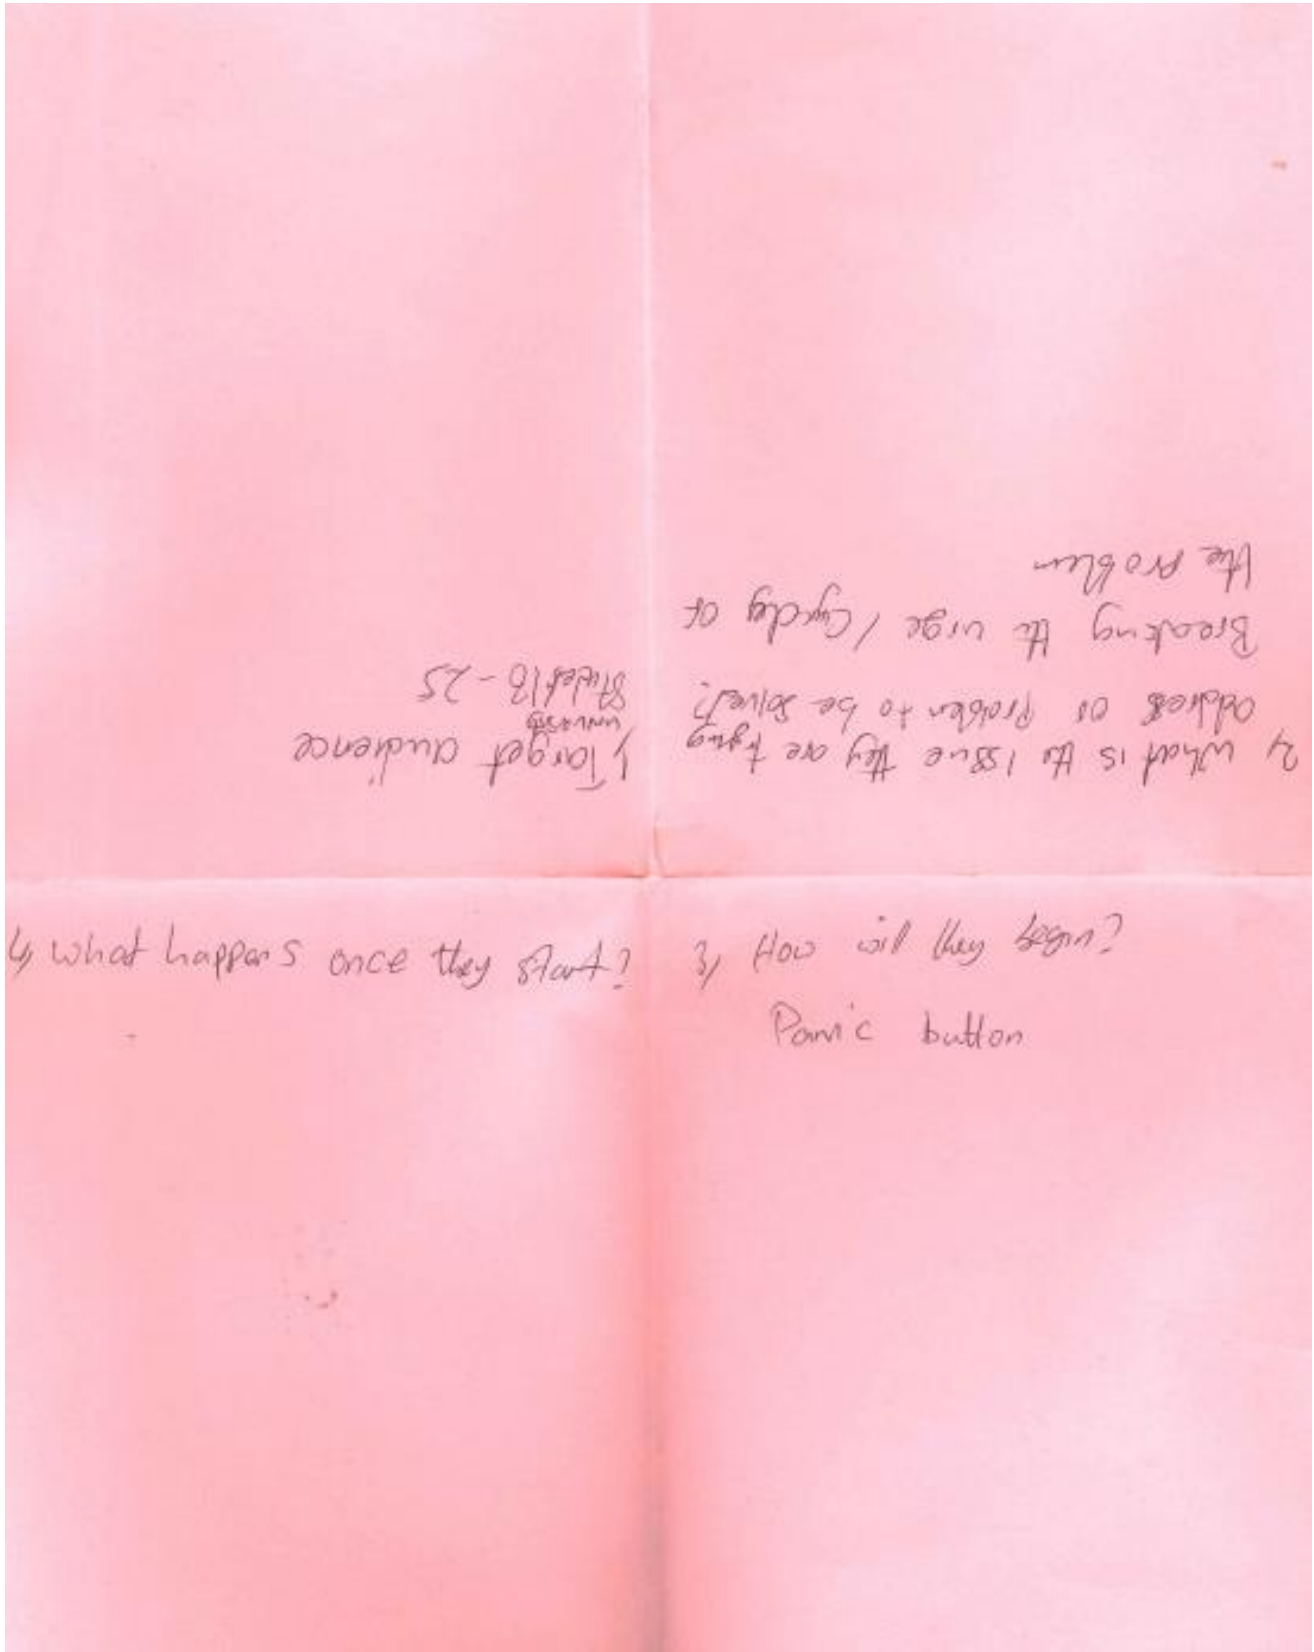 1) Target audience
university
Student 18-25
2) What is the issue they are trying
address or Problem to be solved?
Breaking the urge / Cycle of
the Problem
3) How will they begin?
Panic button
4) What happens once they start?